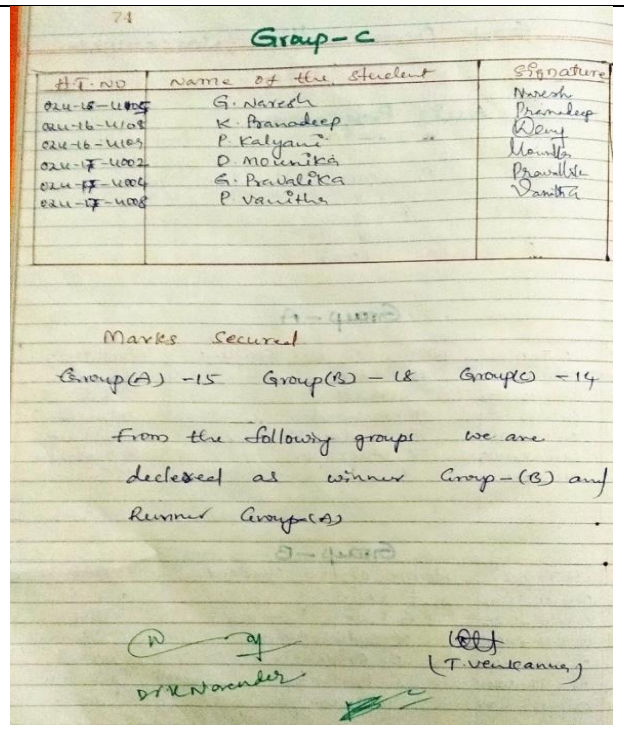 71
Group-C
H.T. NO Name of the Student Signature
024-18-4005 G. Naresh Naresh
024-16-4108 K. Pranadeep Pranadeep
024-16-4109 P. Kalyani
024-17-4002 D. Mounika Mounika
024-17-4004 G. Pravalika Pravalika
024-17-4008 P. Vanitha Vanitha
Marks Secured
Group(A) -15 Group(B) - 18 Group(C) - 14
From the following groups we are
declered as winner Group-(B) and
Runner Group(A)
Dr K Narender
(T. Venkanna)